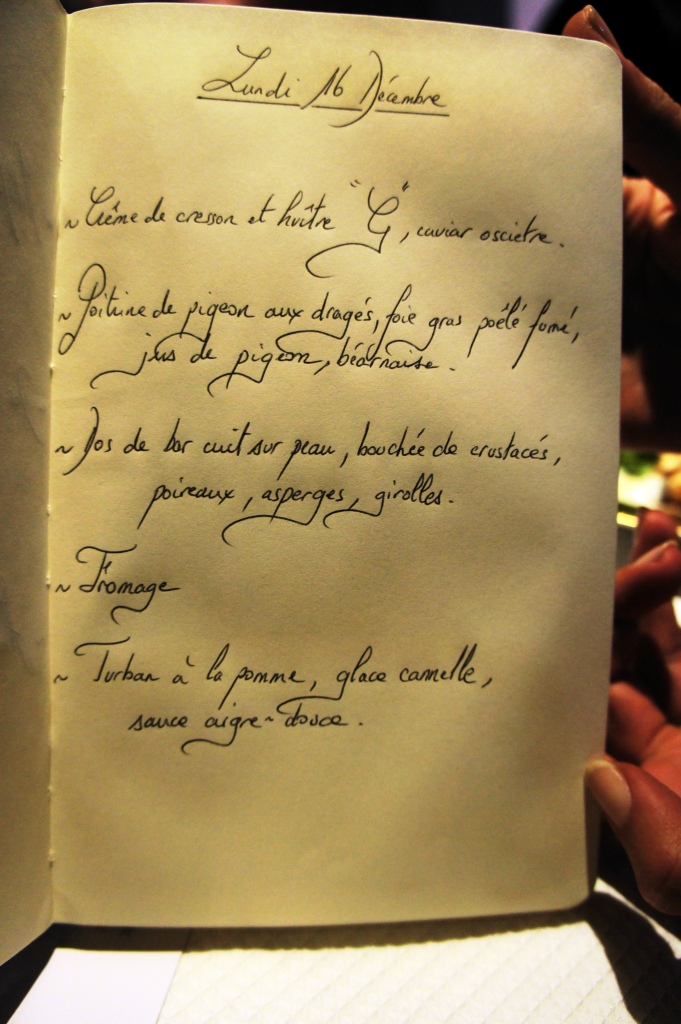 Lundi 16 Décembre
~ Crème de cresson et huître "G", caviar oscietre.
~ Poitrine de pigeon aux dragés, foie gras poêlé fumé,
jus de pigeon, béarnaise.
~ Dos de bar cuit sur peau, bouchée de crustacés,
poireaux, asperges, girolles.
~ Fromage
~ Turban à la pomme, glace cannelle,
sauce aigre-douce.